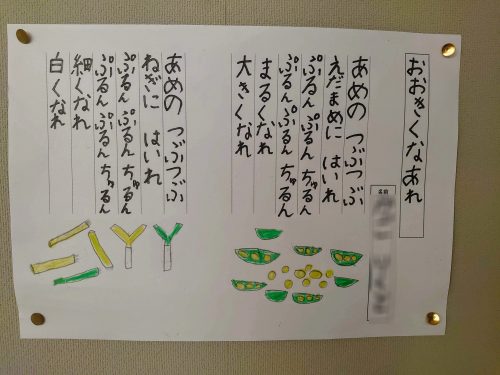 おおきくなあれ
名前
あめの つぶつぶ
えだまめに はいれ
ぷるん ぷるん ちゅるん
ぷるん ぷるん ちゅるん
まるくなれ
大きくなれ
あめの つぶつぶ
ねぎに はいれ
ぷるん ぷるん ちゅるん
ぷるん ぷるん ちゅるん
細くなれ
白くなれ